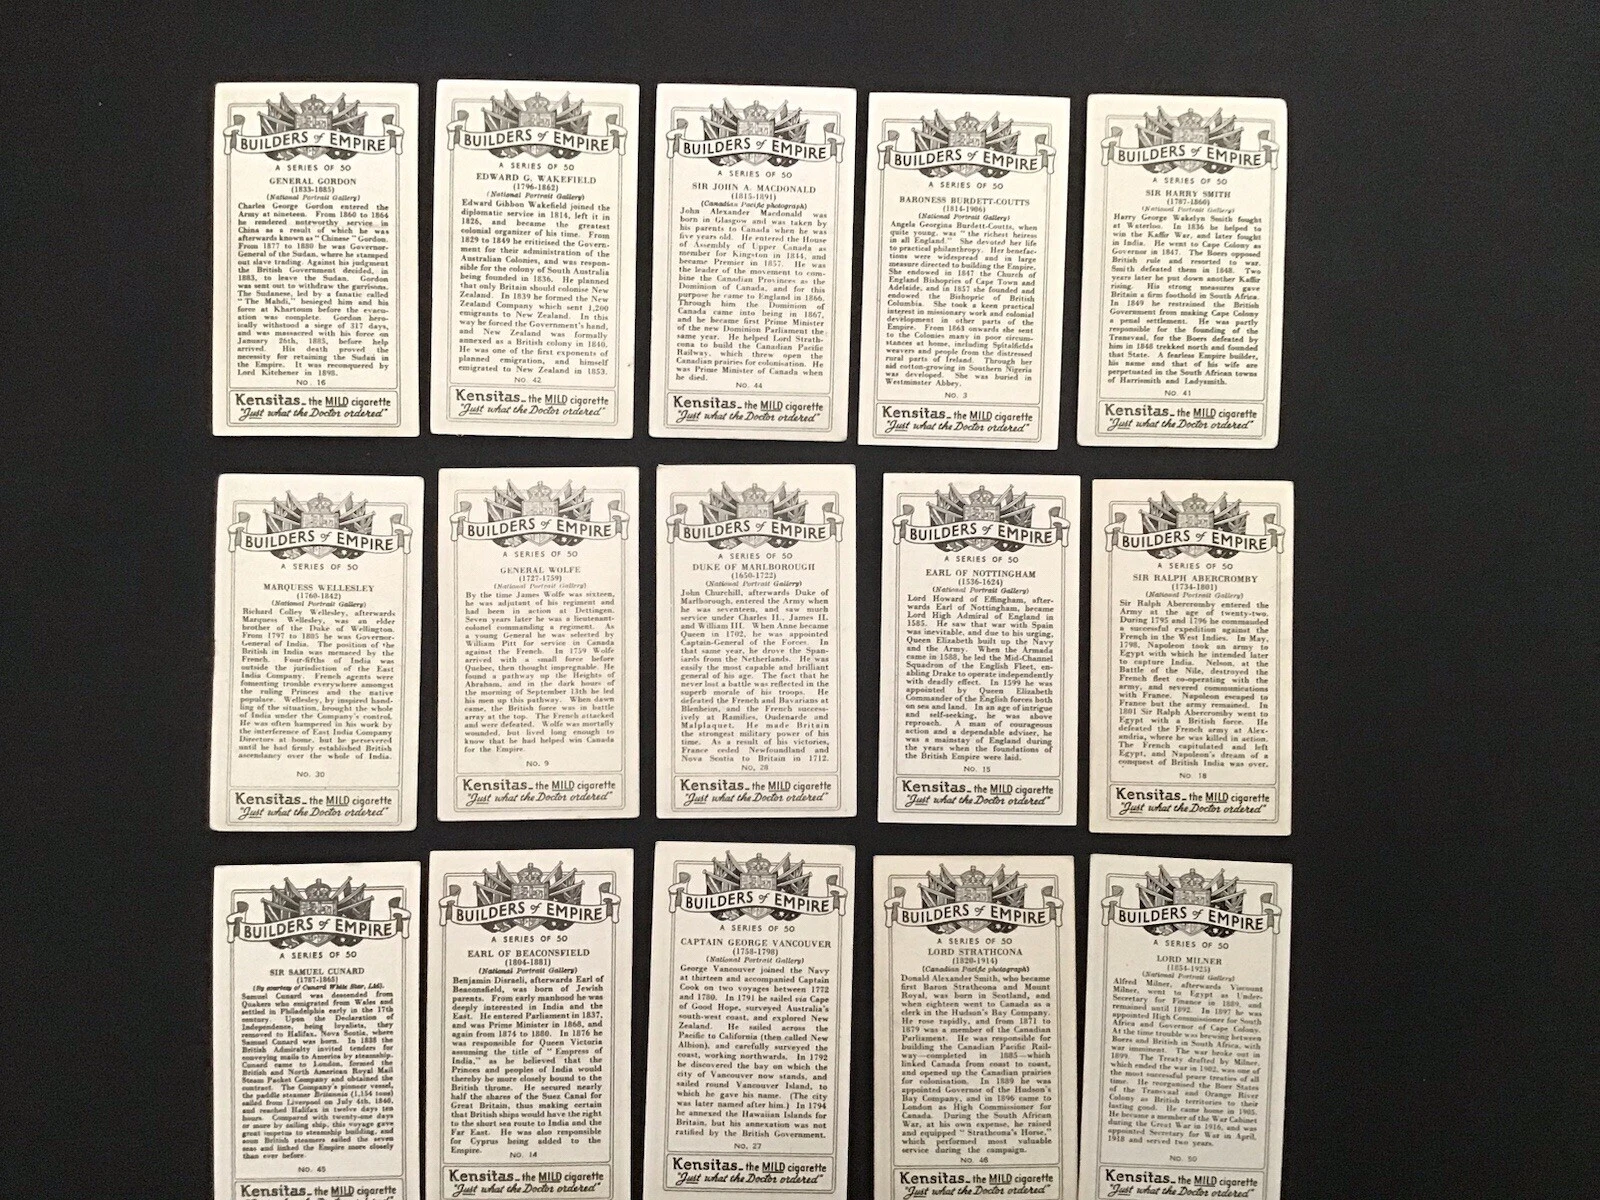 BUILDERS of EMPIRE
A SERIES OF 50
GENERAL GORDON
(1833-1885)
(National Portrait Gallery)
Charles George Gordon entered the
Army at nineteen. From 1860 to 1864
he rendered noteworthy service in
China as a result of which he was
afterwards known as "Chinese" Gordon.
From 1877 to 1880 he was Governor-
General of the Sudan, where he stamped
out slave trading. Against his judgment
the British Government decided, in
1883, to leave the Sudan. Gordon
was sent out to withdraw the garrisons.
The Sudanese, led by a fanatic called
"The Mahdi," besieged him and his
force at Khartoum before the evacu-
ation was complete. Gordon hero-
ically withstood a siege of 317 days,
and was massacred with his force on
January 26th, 1885, before help
arrived. His death proved the
necessity for retaining the Sudan in
the Empire. It was reconquered by
Lord Kitchener in 1898.
No. 16
Kensitas - the MILD cigarette
"Just what the Doctor ordered"
BUILDERS of EMPIRE
A SERIES OF 50
EDWARD G. WAKEFIELD
(1796-1862)
(National Portrait Gallery)
Edward Gibbon Wakefield joined the
diplomatic service in 1814, left it in
1826, and became the greatest
colonial organizer of his time. From
1829 to 1849 he criticised the Govern-
ment for their administration of the
Australian Colonies, and was respon-
sible for the colony of South Australia
being founded in 1836. He planned
that only Britain should colonise New
Zealand. In 1839 he formed the New
Zealand Company which sent 1,200
emigrants to New Zealand. In this
way he forced the Government's hand,
and New Zealand was formally
annexed as a British colony in 1840.
He was one of the first exponents of
planned emigration, and himself
emigrated to New Zealand in 1853.
No. 42
Kensitas - the MILD cigarette
"Just what the Doctor ordered"
BUILDERS of EMPIRE
A SERIES OF 50
SIR JOHN A. MACDONALD
(1815-1891)
(Canadian Pacific photograph)
John Alexander Macdonald was
born in Glasgow and was taken by
his parents to Canada when he was
five years old. He entered the House
of Assembly of Upper Canada as
member for Kingston in 1844, and
became Premier in 1857. He was
the leader of the movement to com-
bine the Canadian Provinces as the
Dominion of Canada, and for this
purpose he came to England in 1866.
Through him the Dominion of
Canada came into being in 1867,
and he became first Prime Minister
of the new Dominion Parliament the
same year. He helped Lord Strath-
cona to build the Canadian Pacific
Railway, which threw open the
Canadian prairies for colonisation. He
was Prime Minister of Canada when
he died.
No. 44
Kensitas - the MILD cigarette
"Just what the Doctor ordered"
BUILDERS of EMPIRE
A SERIES OF 50
BARONESS BURDETT-COUTTS
(1814-1906)
(National Portrait Gallery)
Angela Georgina Burdett-Coutts, when
quite young, was "the richest heiress
in all England." She devoted her life
to practical philanthropy. Her benefac-
tions were widespread and in large
measure directed to building the Empire.
She endowed in 1847 the Church of
England Bishoprics of Cape Town and
Adelaide, and in 1857 she founded and
endowed the Bishopric of British
Columbia. She took a keen practical
interest in missionary work and colonial
development in other parts of the
Empire. From 1863 onwards she sent
to the Colonies many in poor circum-
stances at home, including Spitalfields
weavers and people from the distressed
rural parts of Ireland. Through her
aid cotton-growing in Southern Nigeria
was developed. She was buried in
Westminster Abbey.
No. 3
Kensitas - the MILD cigarette
"Just what the Doctor ordered"
BUILDERS of EMPIRE
A SERIES OF 50
SIR HARRY SMITH
(1787-1860)
(National Portrait Gallery)
Harry George Wakelyn Smith fought
at Waterloo. In 1836 he helped to
win the Kaffir War, and later fought
in India. He went to Cape Colony as
Governor in 1847. The Boers opposed
British rule and resorted to war.
Smith defeated them in 1848. Two
years later he put down another Kaffir
rising. His strong measures gave
Britain a firm foothold in South Africa.
In 1849 he restrained the British
Government from making Cape Colony
a penal settlement. He was partly
responsible for the founding of the
Transvaal, for the Boers defeated by
him in 1848 trekked north and founded
that State. A fearless Empire builder,
his name and that of his wife are
perpetuated in the South African towns
of Harrismith and Ladysmith.
No. 41
Kensitas - the MILD cigarette
"Just what the Doctor ordered"
BUILDERS of EMPIRE
A SERIES OF 50
MARQUESS WELLESLEY
(1760-1842)
(National Portrait Gallery)
Richard Colley Wellesley, afterwards
Marquess Wellesley, was an elder
brother of the Duke of Wellington.
From 1797 to 1805 he was Governor-
General of India. The position of the
British in India was menaced by the
French. Four-fifths of India was
outside the jurisdiction of the East
India Company. French agents were
fomenting trouble everywhere amongst
the ruling Princes and the native
populace. Wellesley, by inspired hand-
ling of the situation, brought the whole
of India under the Company's control.
He was often hampered in his work by
the interference of East India Company
Directors at home, but he persevered
until he had firmly established British
ascendancy over the whole of India.
No. 30
Kensitas - the MILD cigarette
"Just what the Doctor ordered"
BUILDERS of EMPIRE
A SERIES OF 50
GENERAL WOLFE
(1727-1759)
(National Portrait Gallery)
By the time James Wolfe was sixteen,
he was adjutant of his regiment and
had been in action at Dettingen.
Seven years later he was a lieutenant-
colonel commanding a regiment. As
a young General he was selected by
William Pitt for service in Canada
against the French. In 1759 Wolfe
arrived with a small force before
Quebec, then thought impregnable. He
found a pathway up the Heights of
Abraham, and in the dark hours of
the morning of September 13th he led
his men up this pathway. When dawn
came, the British force was in battle
array at the top. The French attacked
and were defeated. Wolfe was mortally
wounded, but lived long enough to
know that he had helped win Canada
for the Empire.
No. 9
Kensitas - the MILD cigarette
"Just what the Doctor ordered"
BUILDERS of EMPIRE
A SERIES OF 50
DUKE OF MARLBOROUGH
(1650-1722)
(National Portrait Gallery)
John Churchill, afterwards Duke of
Marlborough, entered the Army when
he was seventeen, and saw much
service under Charles II., James II.
and William III. When Anne became
Queen in 1702, he was appointed
Captain-General of the Forces. In
that same year, he drove the Span-
iards from the Netherlands. He was
easily the most capable and brilliant
general of his age. The fact that he
never lost a battle was reflected in the
superb morale of his troops. He
defeated the French and Bavarians at
Blenheim, and the French success-
ively at Ramilies, Oudenarde and
Malplaquet. He made Britain
the strongest military power of his
time. As a result of his victories,
France ceded Newfoundland and
Nova Scotia to Britain in 1712.
No. 28
Kensitas - the MILD cigarette
"Just what the Doctor ordered"
BUILDERS of EMPIRE
A SERIES OF 50
EARL OF NOTTINGHAM
(1536-1624)
(National Portrait Gallery)
Lord Howard of Effingham, after-
wards Earl of Nottingham, became
Lord High Admiral of England in
1585. He saw that war with Spain
was inevitable, and due to his urging,
Queen Elizabeth built up the Navy
and the Army. When the Armada
came in 1588, he led the Mid-Channel
Squadron of the English Fleet, en-
abling Drake to operate independently
with deadly effect. In 1599 he was
appointed by Queen Elizabeth
Commander of the English forces both
on sea and land. In an age of intrigue
and self-seeking, he was above
reproach. A man of courageous
action and a dependable adviser, he
was a mainstay of England during
the years when the foundations of
the British Empire were laid.
No. 15
Kensitas - the MILD cigarette
"Just what the Doctor ordered"
BUILDERS of EMPIRE
A SERIES OF 50
SIR RALPH ABERCROMBY
(1734-1801)
(National Portrait Gallery)
Sir Ralph Abercromby entered the
Army at the age of twenty-two.
During 1795 and 1796 he commanded
a successful expedition against the
French in the West Indies. In May,
1798, Napoleon took an army to
Egypt with which he intended later
to capture India. Nelson, at the
Battle of the Nile, destroyed the
French fleet co-operating with the
army, and severed communications
with France. Napoleon escaped to
France but the army remained. In
1801 Sir Ralph Abercromby went to
Egypt with a British force. He
defeated the French army at Alex-
andria, where he was killed in action.
The French capitulated and left
Egypt, and Napoleon's dream of a
conquest of British India was over.
No. 18
Kensitas - the MILD cigarette
"Just what the Doctor ordered"
BUILDERS of EMPIRE
A SERIES OF 50
SIR SAMUEL CUNARD
(1787-1865)
(By courtesy of Cunard White Star, Ltd.)
Samuel Cunard was descended from
Quakers who emigrated from Wales and
settled in Philadelphia early in the 17th
century. Upon the Declaration of
Independence, being loyalists, they
removed to Halifax, Nova Scotia, where
Samuel Cunard was born. In 1838 the
British Admiralty invited tenders for
conveying mails to America by steamship.
Cunard came to London, formed the
British and North American Royal Mail
Steam Packet Company and obtained the
contract. The Company's pioneer vessel,
the paddle steamer Britannia (1,154 tons)
sailed from Liverpool on July 4th, 1840,
and reached Halifax in twelve days ten
hours. Compared with twenty-one days
or more by sailing ship, this voyage gave
great impetus to steamship building, and
soon British steamers sailed the seven
seas and linked the Empire more closely
than ever before.
No. 45
Kensitas - the MILD cigarette
BUILDERS of EMPIRE
A SERIES OF 50
EARL OF BEACONSFIELD
(1804-1881)
(National Portrait Gallery)
Benjamin Disraeli, afterwards Earl of
Beaconsfield, was born of Jewish
parents. From early manhood he was
deeply interested in India and the
East. He entered Parliament in 1837,
and was Prime Minister in 1868, and
again from 1874 to 1880. In 1876 he
was responsible for Queen Victoria
assuming the title of "Empress of
India," as he believed that the
Princes and peoples of India would
thereby be more closely bound to the
British throne. He secured nearly
half the shares of the Suez Canal for
Great Britain, thus making certain
that British ships would have the right
to the short sea route to India and the
Far East. He was also responsible
for Cyprus being added to the
Empire.
No. 14
Kensitas - the MILD cigarette
"Just what the Doctor ordered"
BUILDERS of EMPIRE
A SERIES OF 50
CAPTAIN GEORGE VANCOUVER
(1758-1798)
(National Portrait Gallery)
George Vancouver joined the Navy
at thirteen and accompanied Captain
Cook on two voyages between 1772
and 1780. In 1791 he sailed via Cape
of Good Hope, surveyed Australia's
south-west coast, and explored New
Zealand. He sailed across the
Pacific to California (then called New
Albion), and carefully surveyed the
coast, working northwards. In 1792
he discovered the bay on which the
city of Vancouver now stands, and
sailed round Vancouver Island, to
which he gave his name. (The city
was later named after him.) In 1794
he annexed the Hawaiian Islands for
Britain, but his annexation was not
ratified by the British Government.
No. 27
Kensitas - the MILD cigarette
"Just what the Doctor ordered"
BUILDERS of EMPIRE
A SERIES OF 50
LORD STRATHCONA
(1820-1914)
(Canadian Pacific photograph)
Donald Alexander Smith, who became
first Baron Strathcona and Mount
Royal, was born in Scotland, and
when eighteen went to Canada as a
clerk in the Hudson's Bay Company.
He rose rapidly, and from 1871 to
1879 was a member of the Canadian
Parliament. He was responsible for
building the Canadian Pacific Rail-
way—completed in 1885—which
linked Canada from coast to coast,
and opened up the Canadian prairies
for colonisation. In 1889 he was
appointed Governor of the Hudson's
Bay Company, and in 1896 came to
London as High Commissioner for
Canada. During the South African
War, at his own expense, he raised
and equipped "Strathcona's Horse,"
which performed most valuable
service during the campaign.
No. 46
Kensitas - the MILD cigarette
"Just what the Doctor ordered"
BUILDERS of EMPIRE
A SERIES OF 50
LORD MILNER
(1854-1925)
(National Portrait Gallery)
Alfred Milner, afterwards Viscount
Milner, went to Egypt as Under-
Secretary for Finance in 1889, and
remained until 1892. In 1897 he was
appointed High Commissioner for South
Africa and Governor of Cape Colony.
At the time trouble was brewing between
Boers and British in South Africa, with
war imminent. The war broke out in
1899. The Treaty drafted by Milner,
which ended the war in 1902, was one of
the most successful peace treaties of all
time. He reorganised the Boer States
of the Transvaal and Orange River
Colony as British territories to their
lasting good. He came home in 1905.
He became a member of the War Cabinet
during the Great War in 1916, and was
appointed Secretary for War in April,
1918 and served two years.
No. 50
Kensitas - the MILD cigarette
"Just what the Doctor ordered"